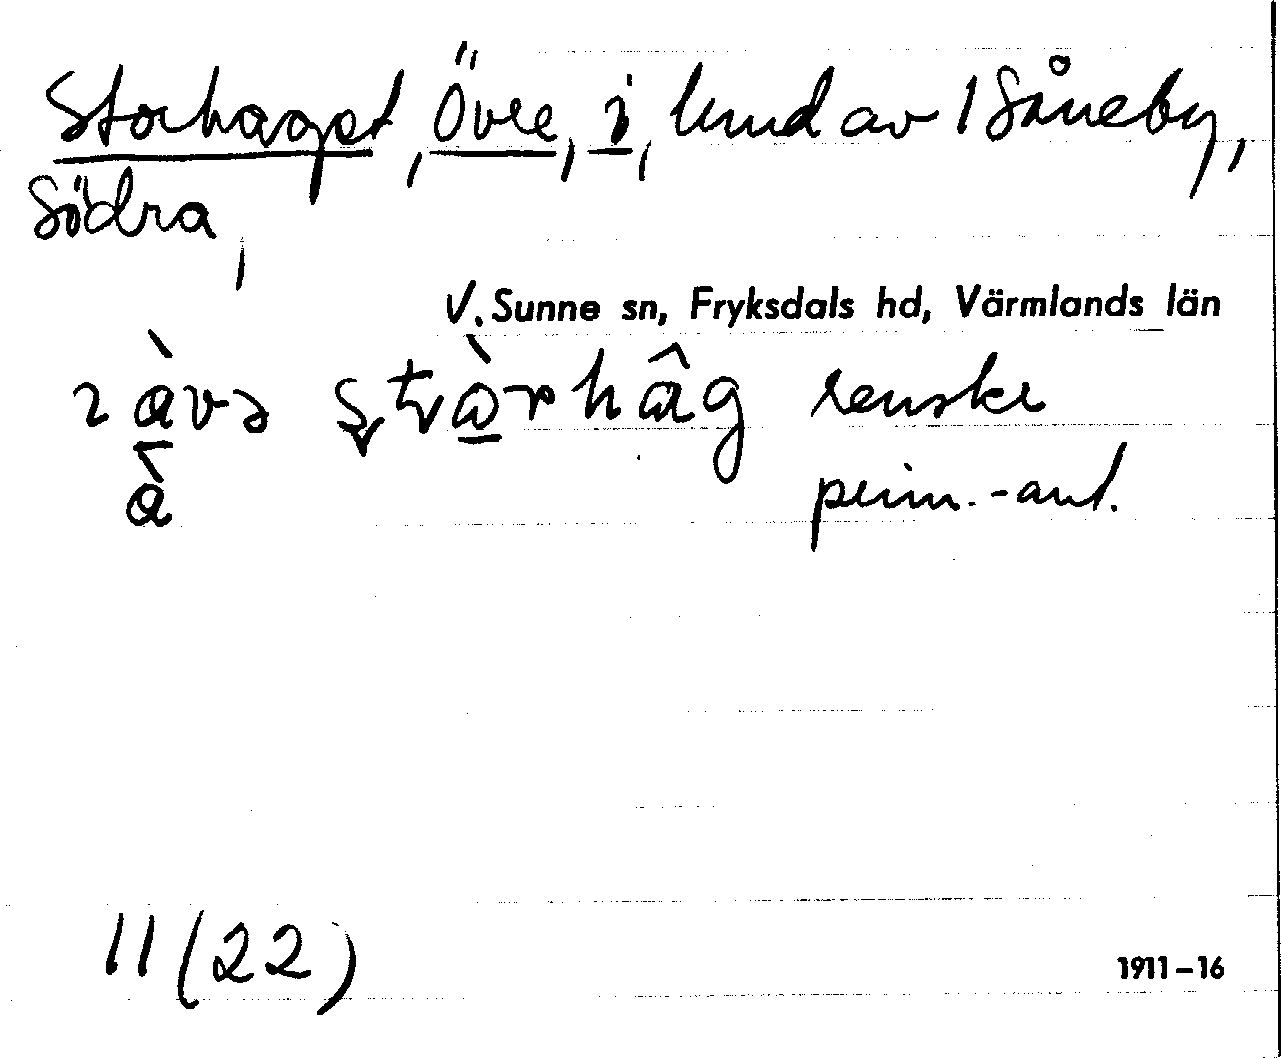 Storhaget, Övre, i, lund av 1 Såneby,
Södra,
V. Sunne sn, Fryksdals hd, Värmlands län
renskr
prim.-ant.
11 (22)
1911–16